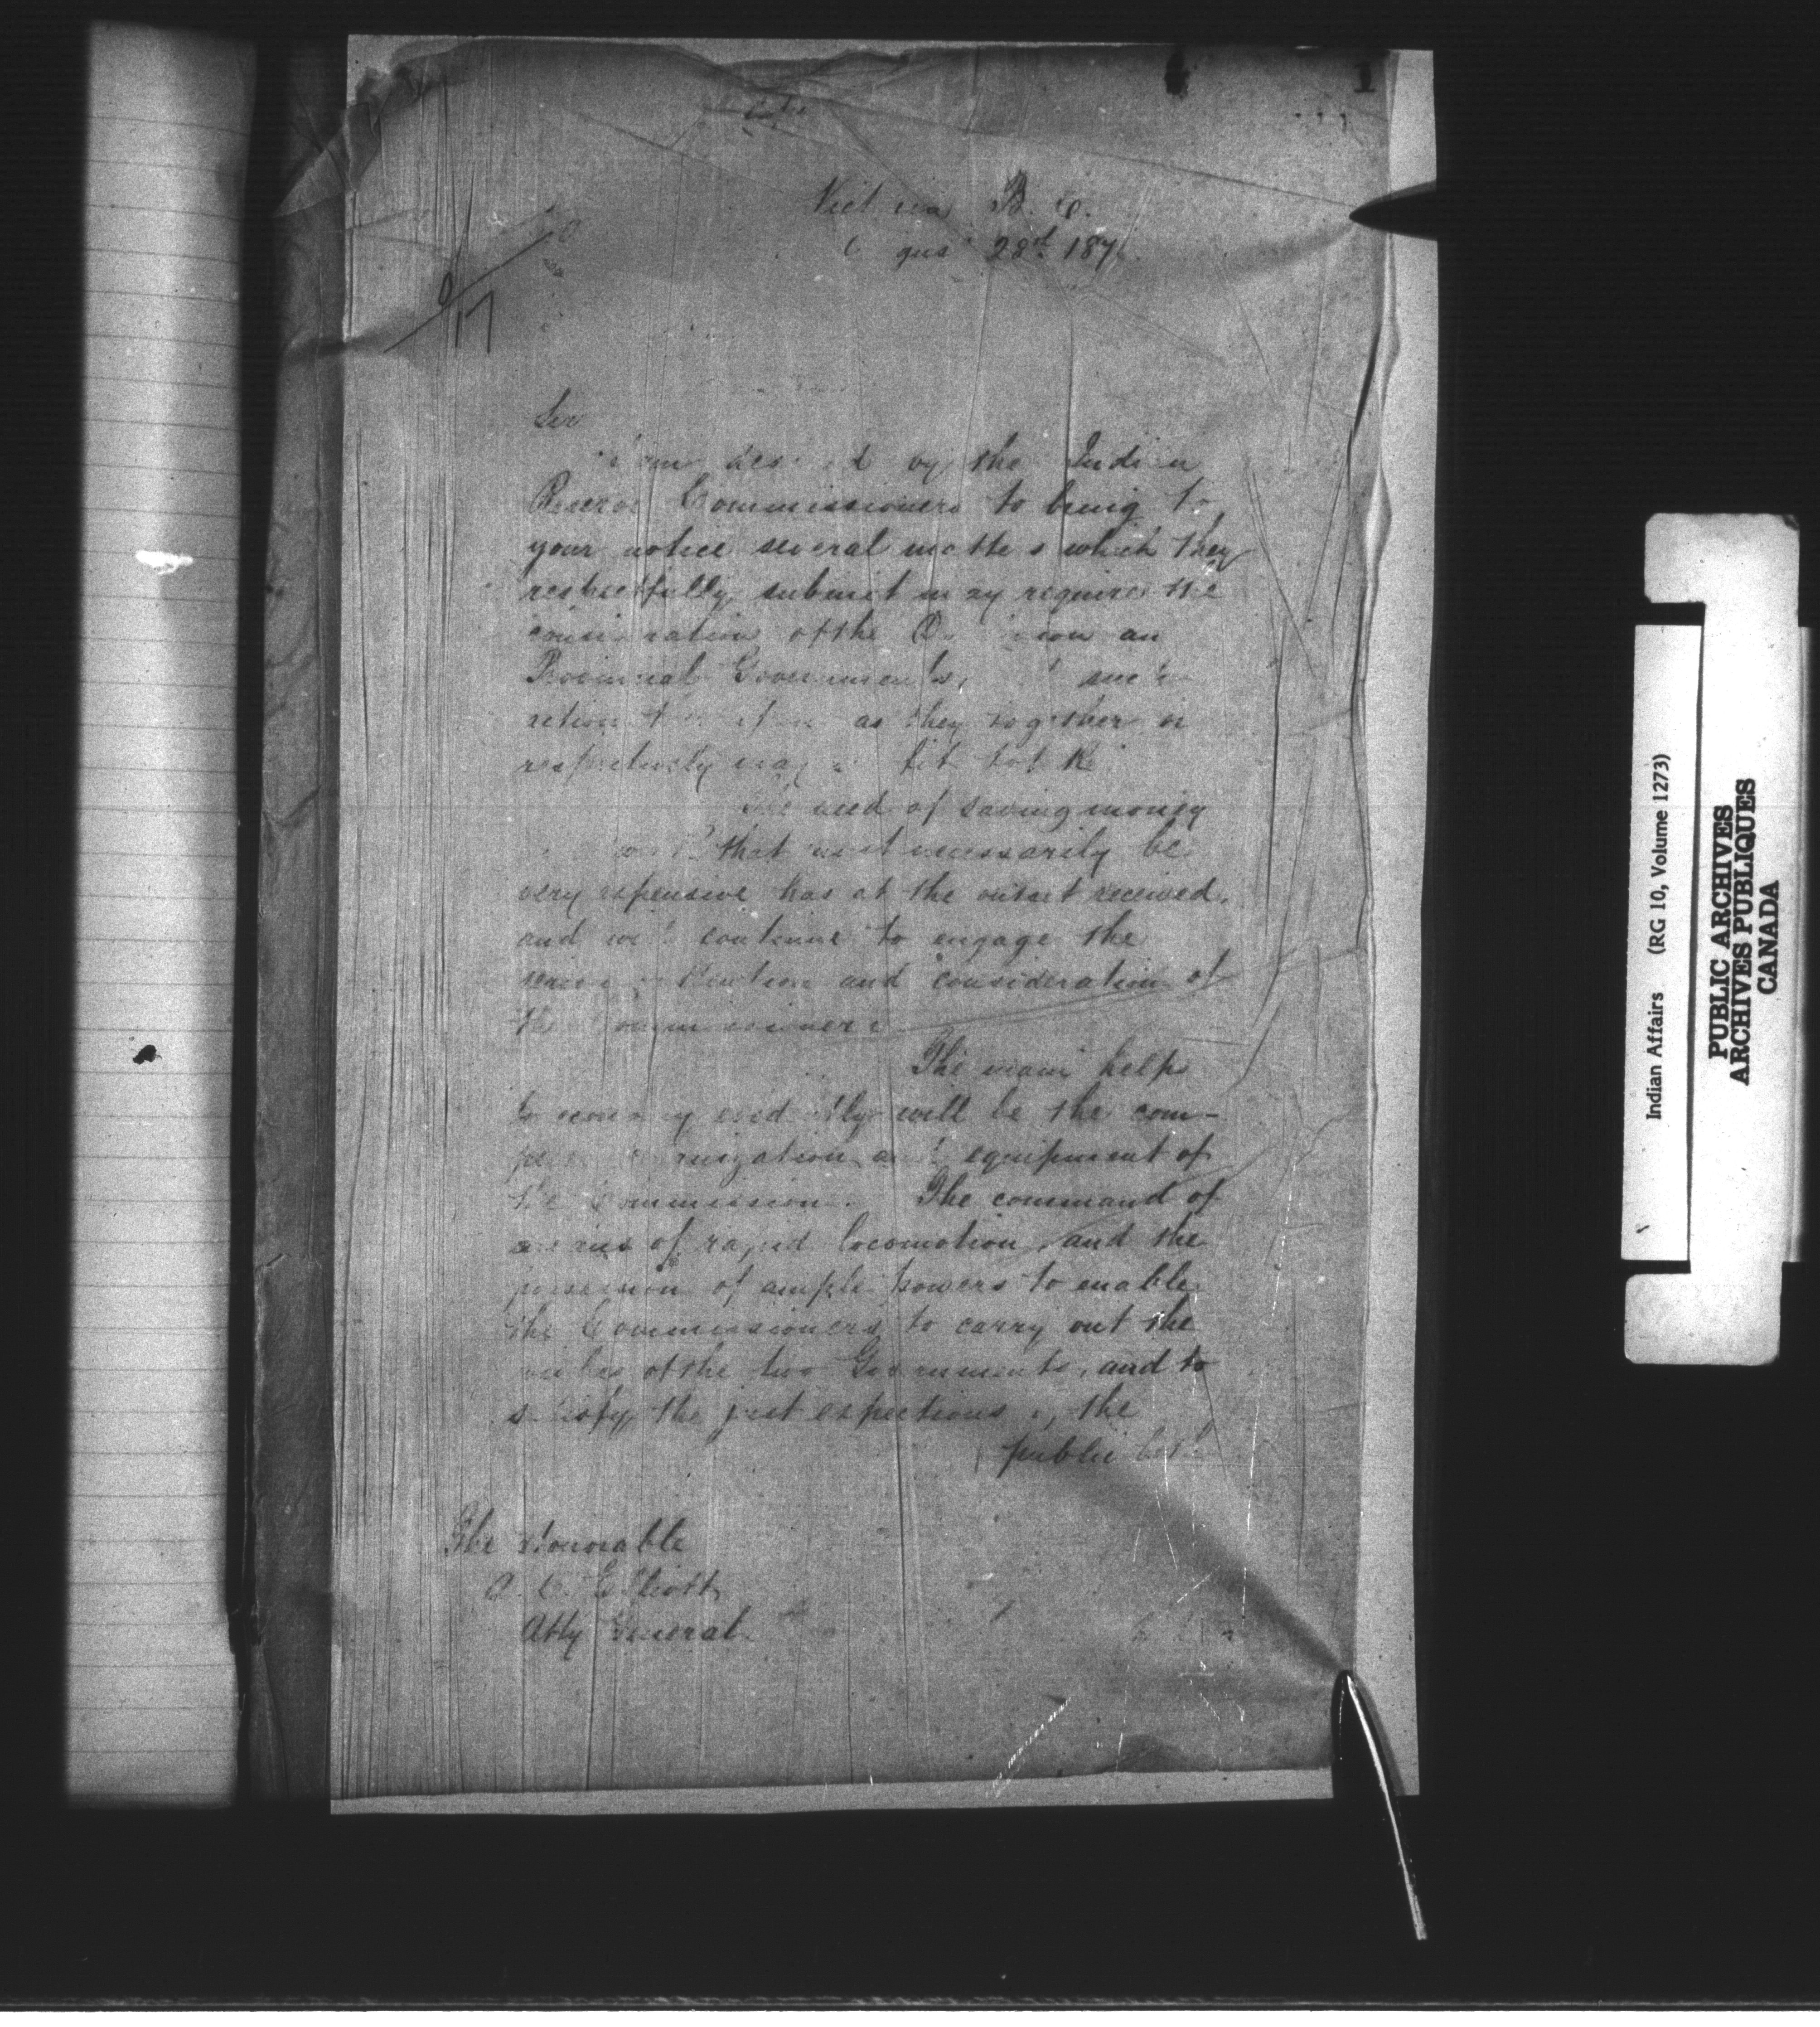 1
B. C.
28th 187
17
Sir
by the Indian
Reserve Commissioners to bring to
your notice several matters which they
respectfully submit may require the
consideration of the Dominion an
Provincial Governments, such
action as they together or
respectively may fit
The need of saving money
that must necessarily be
very expensive has at the outset received,
and will continue to engage the
serious attention and consideration of
the Commissioners
The main helps
to economy evidently will be the com-
organization and equipment of
the Commission. The command of
means of rapid locomotion, and the
possession of ample powers to enable
the Commissioners to carry out the
wishes of the two Governments, and to
satisfy the just expections of the
public both
The Honorable
A. C. Elliott
Atty General.
Indian Affairs (RG 10, Volume 1273)
PUBLIC ARCHIVES
ARCHIVES PUBLIQUES
CANADA